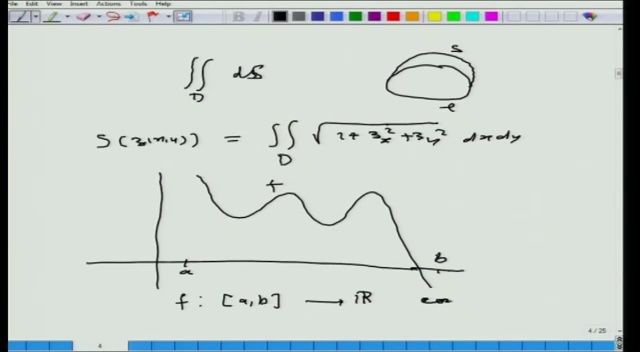 File Edit View Insert Actions Tools Help
∬_D dS
S
S(z(x,y)) = ∬_D √(1+z_x²+z_y²) dxdy
f
a b
f : [a,b] → ℝ
4 / 25
4